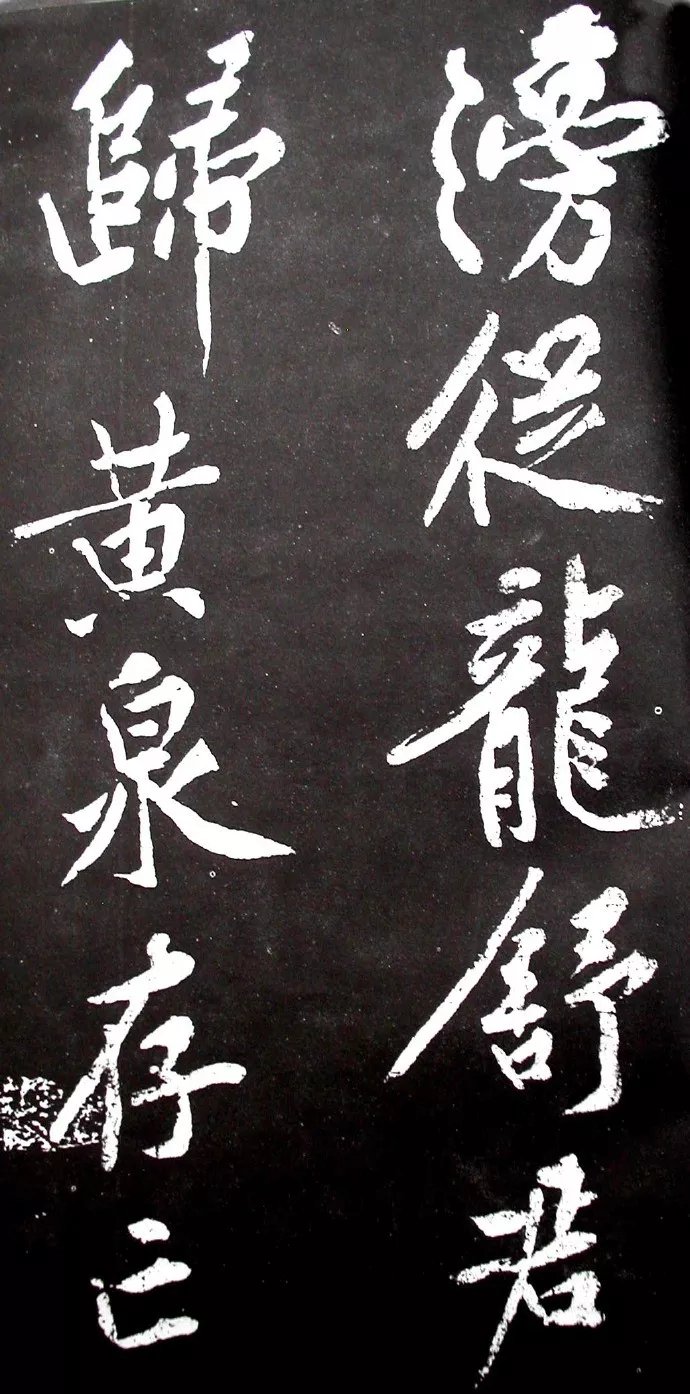 滂從龍舒若
歸黃泉存亡